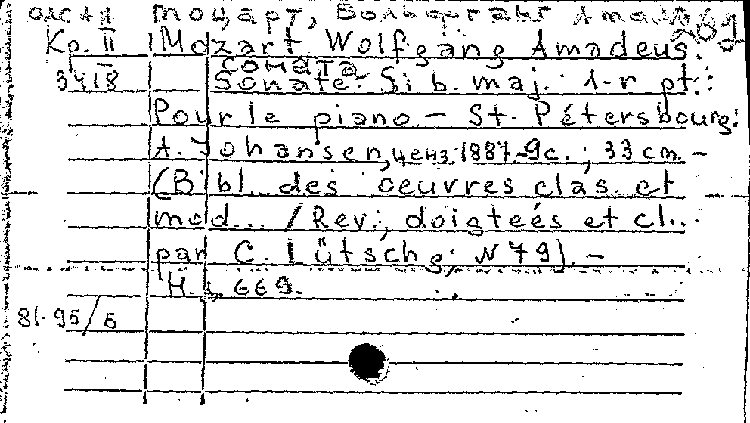 Моцарт, Вольфганг Амадей 269
Кр. II Mozart Wolfgang Amadeus.
соната
3418 Sonate. Si b. maj. 1-r pt.:
Pour le piano – St. Pétersbourg:
A. Johansen, ценз. 1887. – 9c.; 33 cm. –
(Bibl. des oeuvres clas. et
mod... / Rev., doigteés et cl..
par C. Lütschg; N 79). –
H. 5, 669.
81-95/6